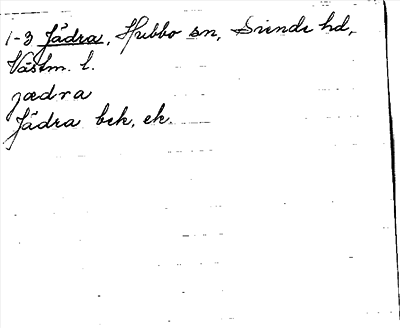 1-3 Jädra, Hubbo sn, Siende hd,
Västm. l.
jædra
Jädra bck, ek.